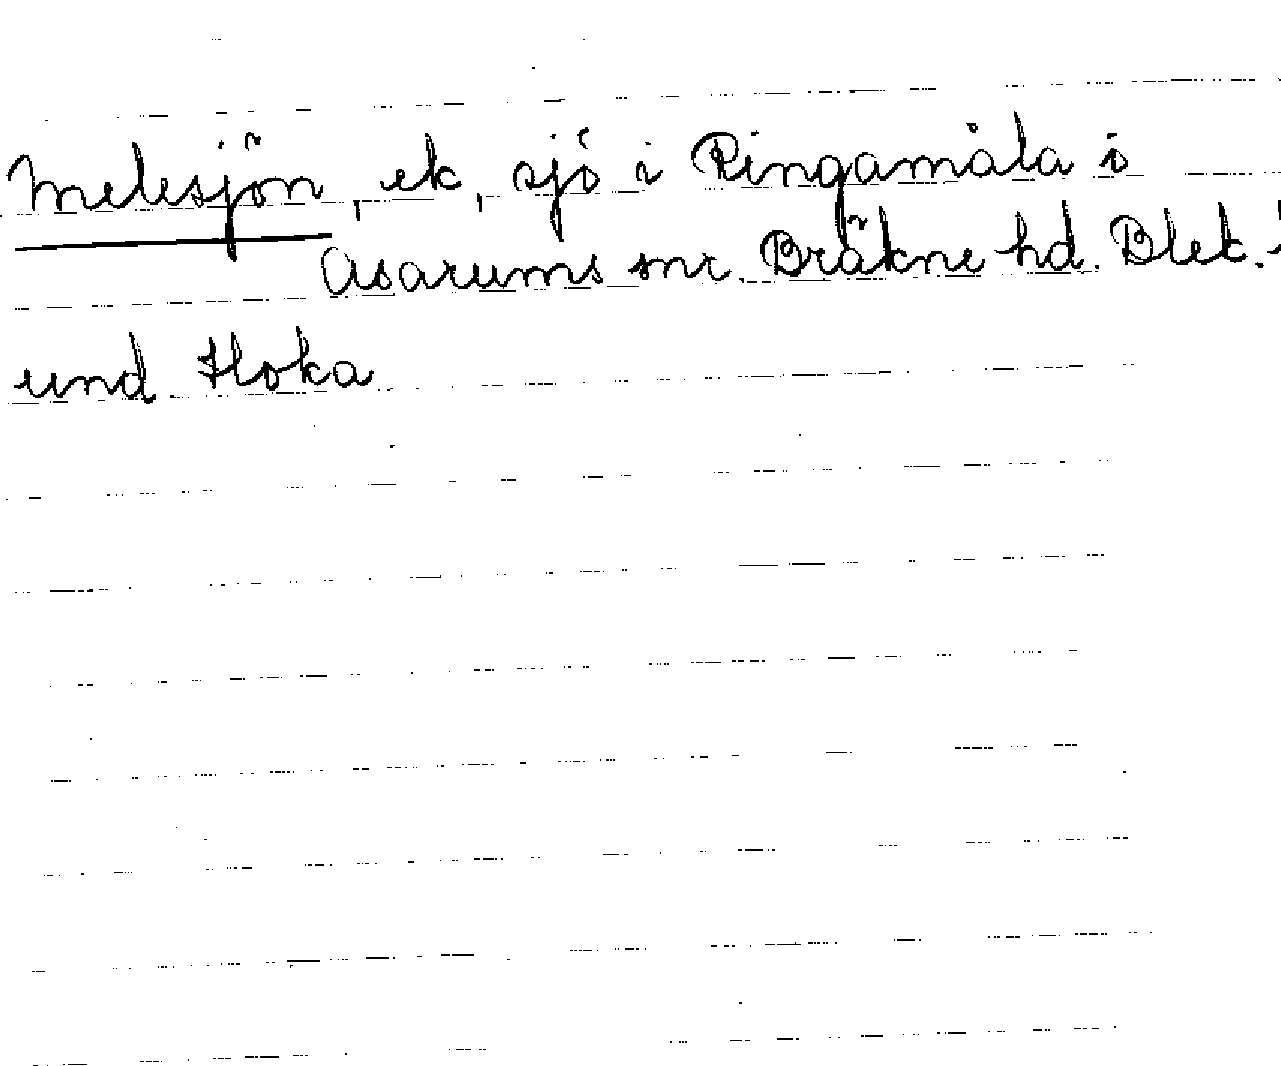 Melesjön, ek, sjö i Ringamåla i
Asarums snr. Bräkne hd. Blek.
und Hoka